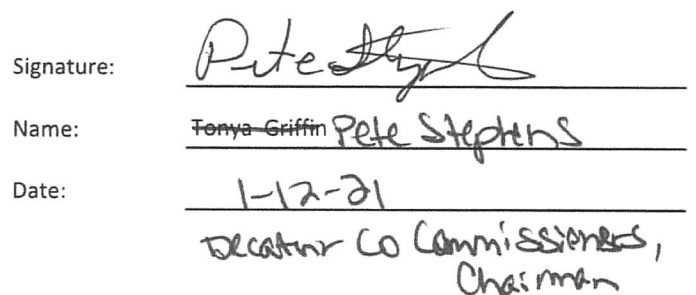 Signature: Pete Stephens
Name: Tonya Griffin Pete Stephens
Date: 1-12-21
Decatur Co Commissioners,
Chairman